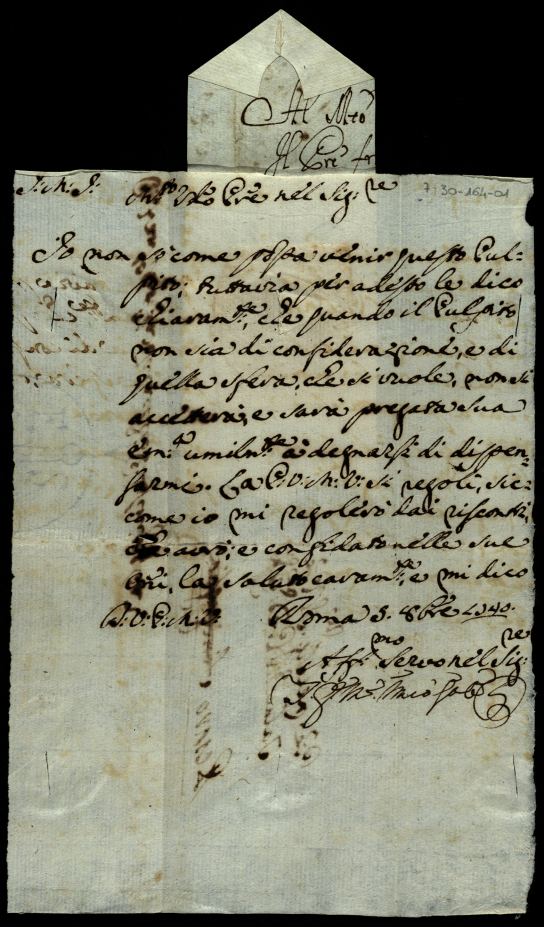 Al Mto
Il Pre fr
J: M: J:
7130-164-01
Mto Vdo Pre nel Sig:re
Io non sò come possa venir questo Pul-
pito; tuttavia per adesso le dico
chiaramte, che quando il Pulpito
non sia di considerazione, e di
quella sfera, che si vuole, non si
accetterà, e sarà pregata sua
em:a umilmte à degnarsi di dispen-
sarmi. La P. V. M. V: si regoli, sic-
come io mi regolerò dai riscontri,
che avrò; e confidato nelle sue
Ori, la saluto caramte, e mi dico
D: V: P: M: V: Roma 5. 8bre 1740.
Affmo Servo nel Sig:re